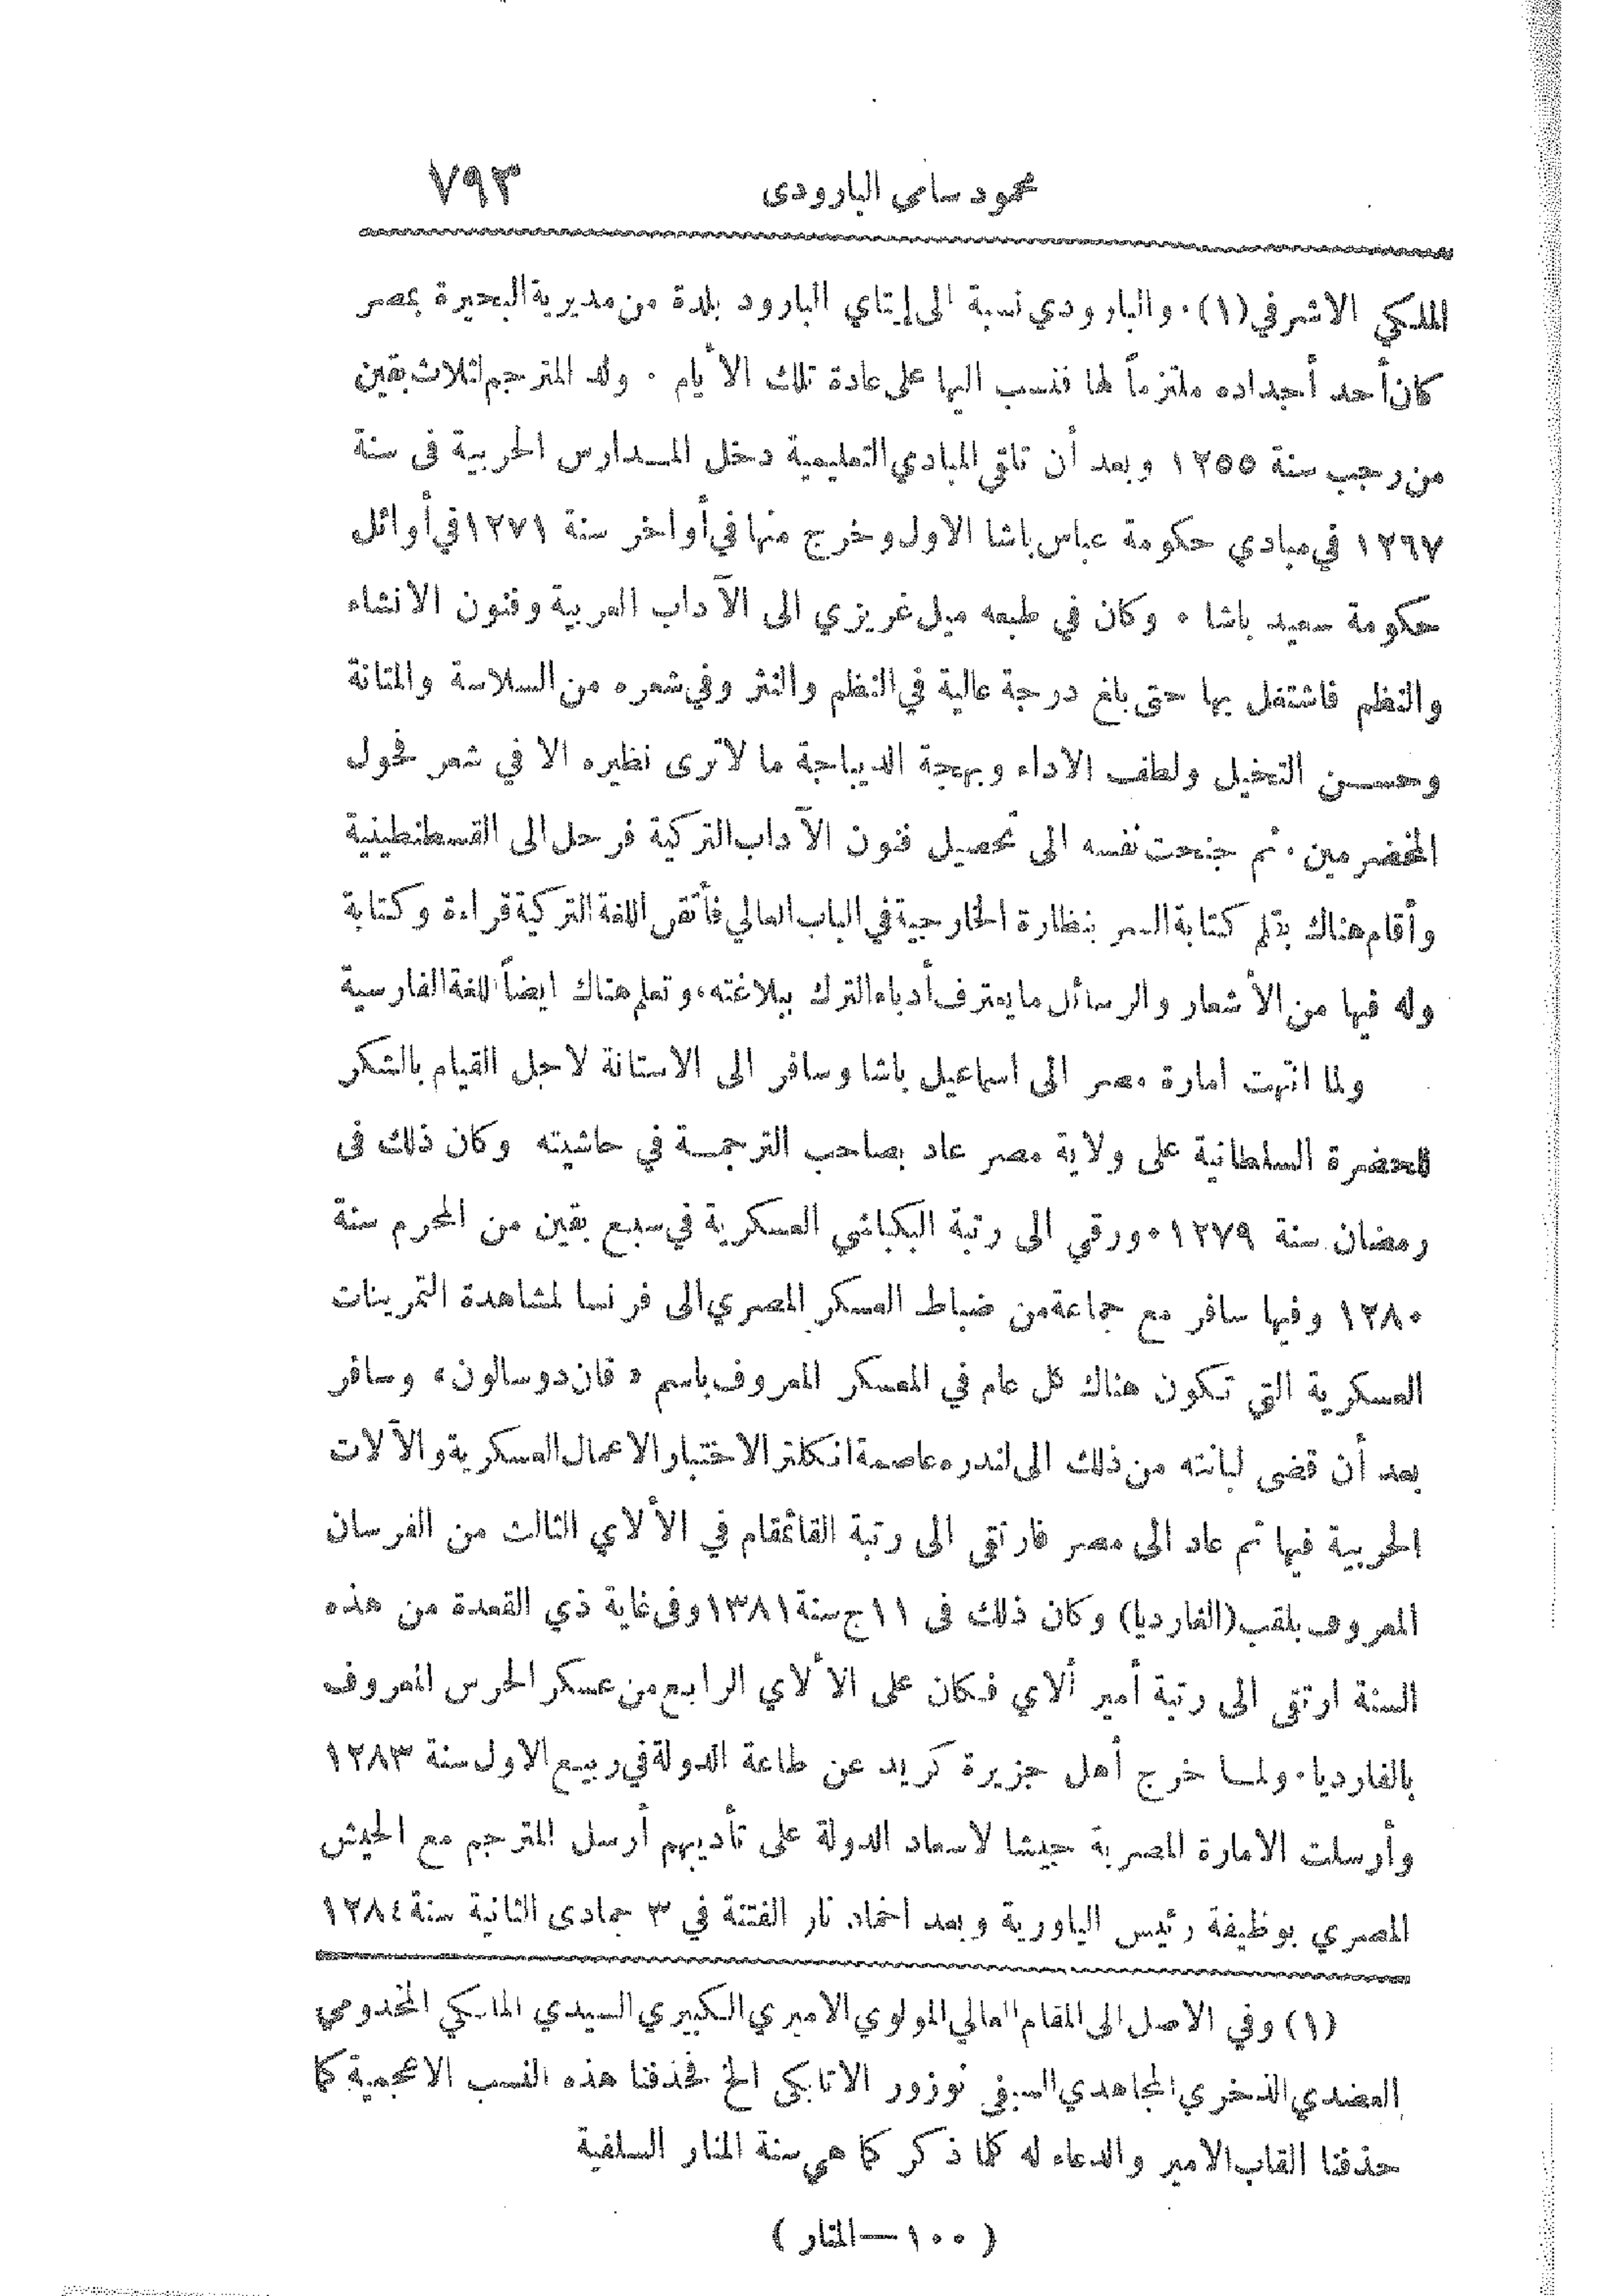 محمود سامي البارودى ٧٩٣
الملكي الاشرفي (١) ٠ والبارودي نسبة الى إيتاي البارود بلدة من مديرية البحيرة بمصر
كان أحد أجداده ملتزماً لها فنسب اليها على عادة تلك الأيام ٠ ولد المترجم لثلاث بقين
من رجب سنة ١٢٥٥ وبعد أن تلقى المبادي التعليمية دخل المدارس الحربية فى سنة
١٢٦٧ في مبادي حكومة عباس باشا الاول وخرج منها في أواخر سنة ١٢٧١ في أوائل
حكومة سعيد باشا ٠ وكان في طبعه ميل غريزي الى الآداب العربية وفنون الانشاء
والنظم فاشتغل بها حتى بلغ درجة عالية في النظم والنثر وفي شعره من السلاسة والمتانة
وحسن التخيل ولطف الاداء وبهجة الديباجة ما لا ترى نظيره الا في شعر فحول
المخضرمين ٠ ثم جنحت نفسه الى تحصيل فنون الآداب التركية فرحل الى القسطنطينية
وأقام هناك بقلم كتابة السر بنظارة الخارجية في الباب العالي فأتقن اللغة التركية قراءة وكتابة
وله فيها من الأشعار والرسائل ما يعترف أدباء الترك ببلاغته، وتعلم هناك ايضاً اللغة الفارسية
ولما انتهت امارة مصر الى اسماعيل باشا وسافر الى الاستانة لاجل القيام بالشكر
للحضرة السلطانية على ولاية مصر عاد بصاحب الترجمة في حاشيته وكان ذلك فى
رمضان سنة ١٢٧٩ ٠ ورقي الى رتبة البكباشي العسكرية في سبع بقين من المحرم سنة
١٢٨٠ وفيها سافر مع جماعة من ضباط العسكر المصري الى فرنسا لمشاهدة التمرينات
العسكرية التي تكون هناك كل عام في المعسكر المعروف باسم « قان دوسالون » وسافر
بعد أن قضى لبانته من ذلك الى لندره عاصمة انكلترا لاختبار الاعمال العسكرية والآلات
الحربية فيها ثم عاد الى مصر فارتقى الى رتبة القائمقام في الألاي الثالث من الفرسان
المعروف بلقب (الغارديا) وكان ذلك فى ١١ ج سنة ١٣٨١ وفى غاية ذي القعدة من هذه
السنة ارتقى الى رتبة أمير ألاي فكان على الألاي الرابع من عسكر الحرس المعروف
بالغارديا ٠ ولما خرج أهل جزيرة كريد عن طاعة الدولة في ربيع الاول سنة ١٢٨٣
وأرسلت الامارة المصرية جيشا لاسعاد الدولة على تأديبهم أرسل المترجم مع الجيش
المصري بوظيفة رئيس الياورية وبعد اخماد نار الفتنة في ٣ جمادى الثانية سنة ١٢٨٤
(١) وفي الاصل الى المقام العالي المولوي الاميري الكبيري السيدي المالكي المخدومي
العضدي الذخري المجاهدي السيفي نوزور الاتابكى الخ فحذفنا هذه النسب الاعجمية كما
حذفنا القاب الامير والدعاء له كلما ذكر كما هي سنة المنار السلفية
( ١٠٠ — المنار )